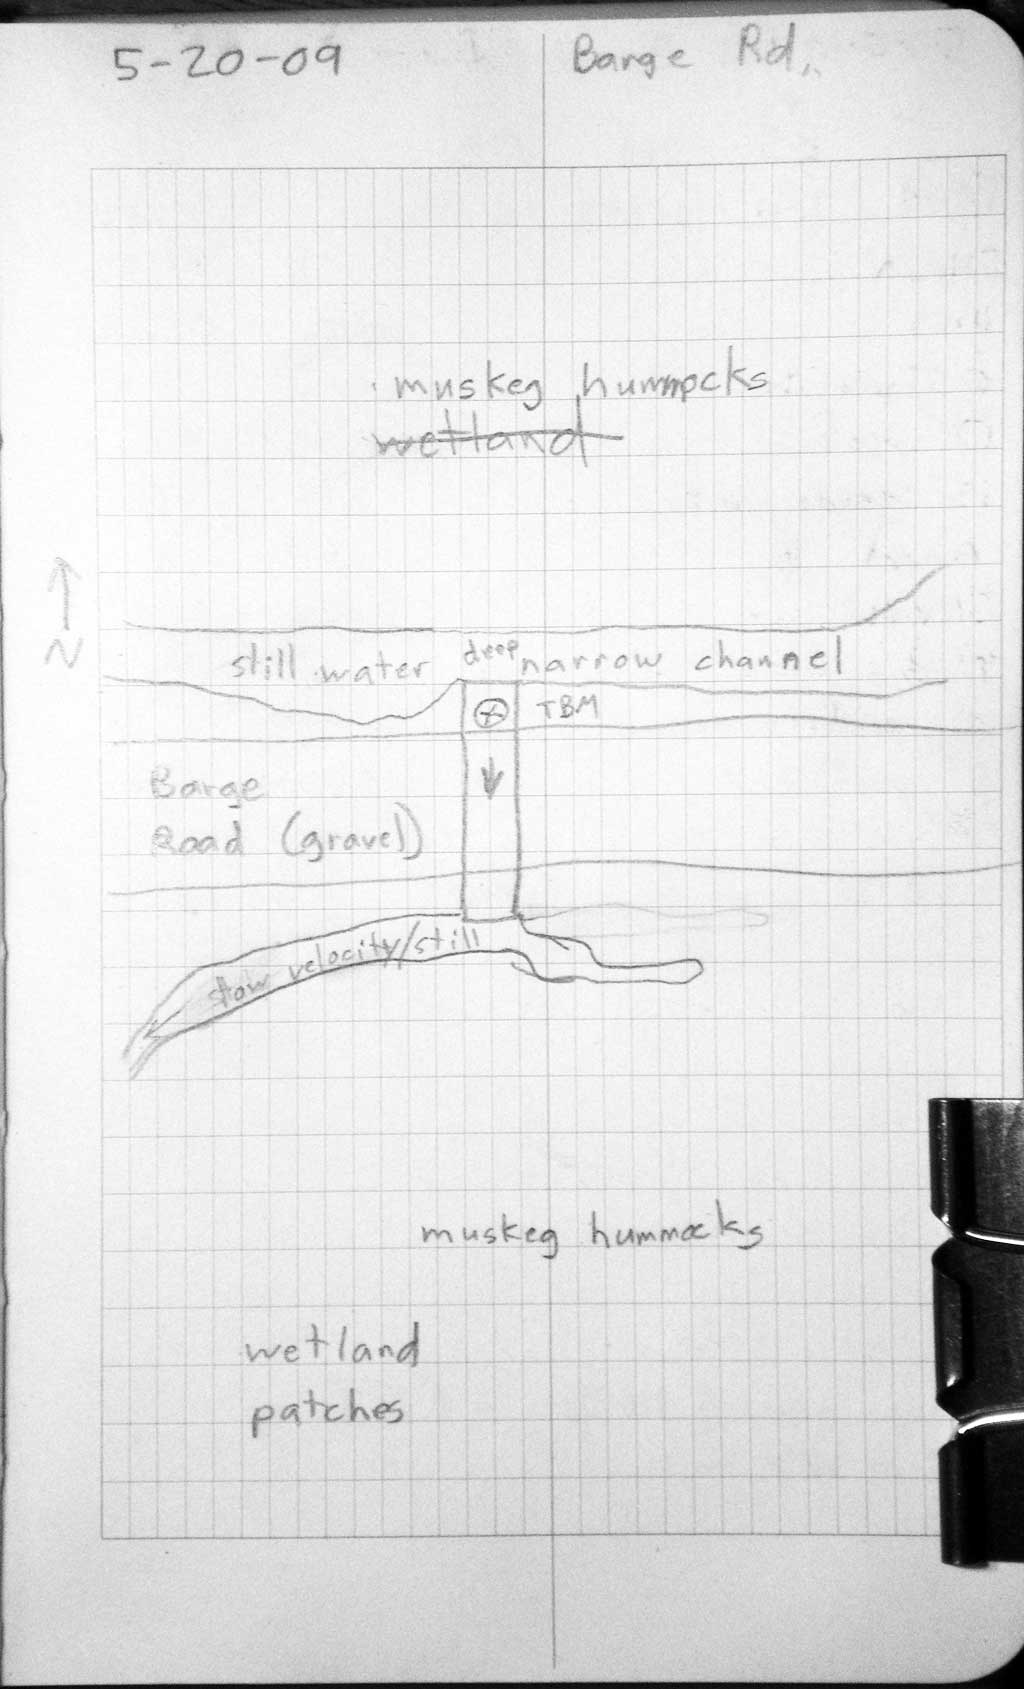 5-20-09 Barge Rd.
muskeg hummocks
wetland
N
still water deep narrow channel
TBM
Barge
Road (gravel)
slow velocity/still
muskeg hummocks
wetland
patches